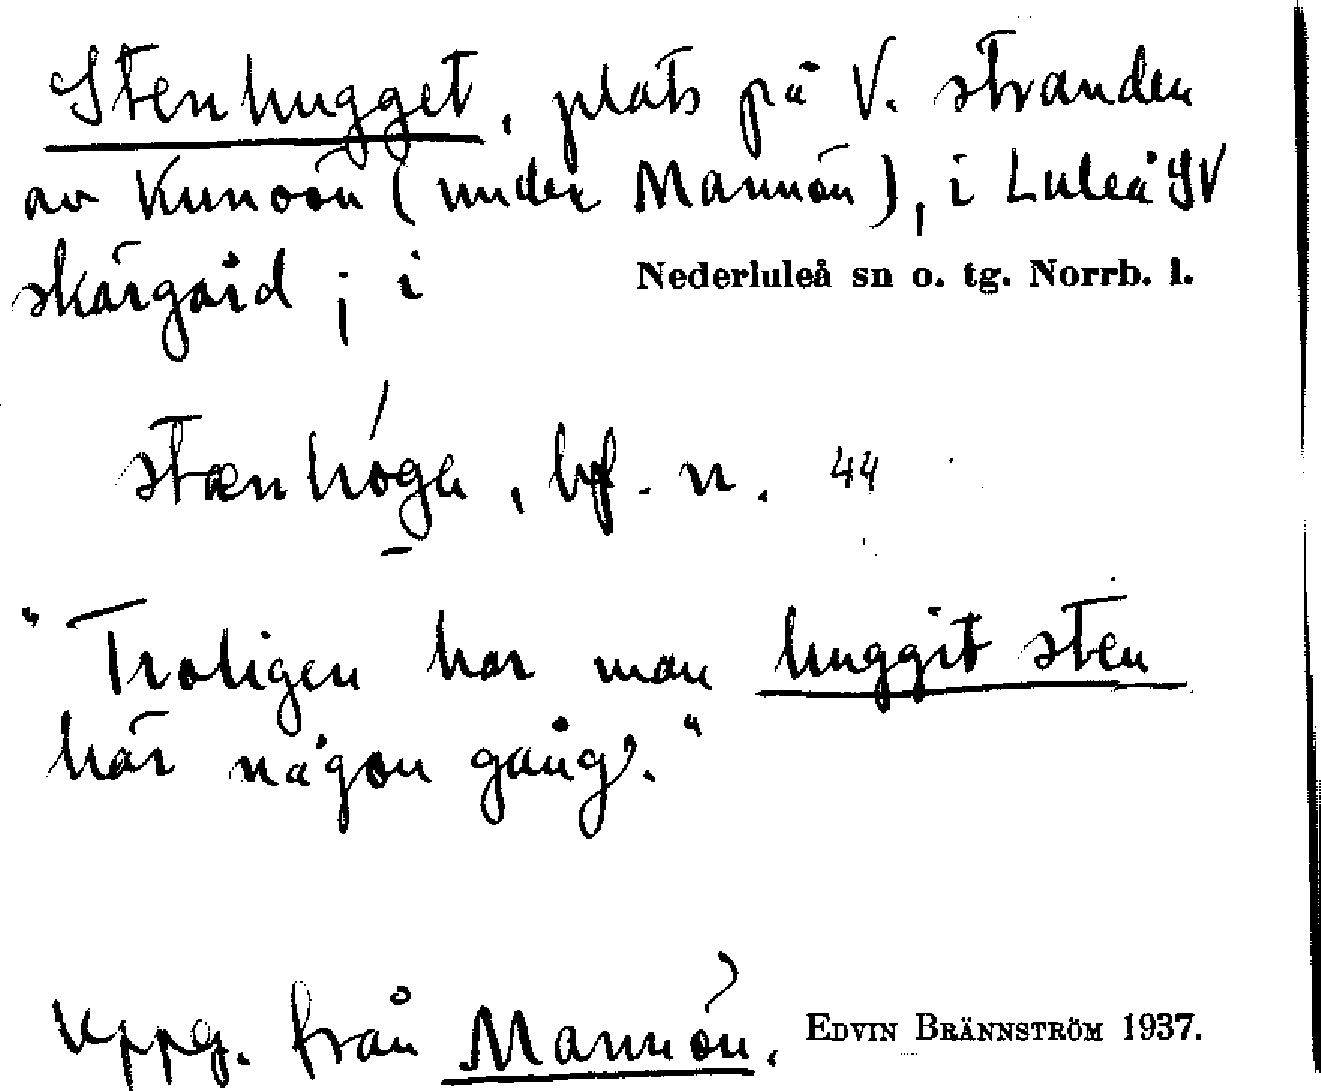 Stenhugget, plats på V. stranden
av Kunoön (under Mannön), i Luleå SV
skärgård ; i Nederluleå sn o. tg. Norrb. l.
bf. n. 44
"Troligen har man huggit sten
här någon gång."
Uppg. från Mannön. EDVIN BRÄNNSTRÖM 1937.